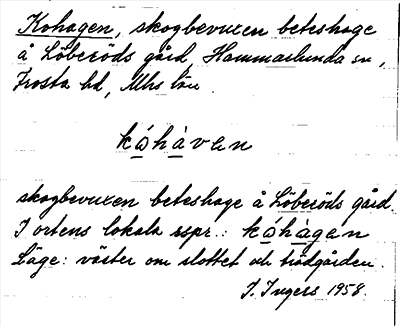 Kohagen, skogbevuxen beteshage
å Löberöds gård, Hammarlunda sn,
Frosta hd, Mhs län.
kóhàven
skogbevuxen beteshage å Löberöds gård.
I ortens lokala rspr.: kóhàgen
Läge: väster om slottet och trädgården.
I. Ingers 1958.